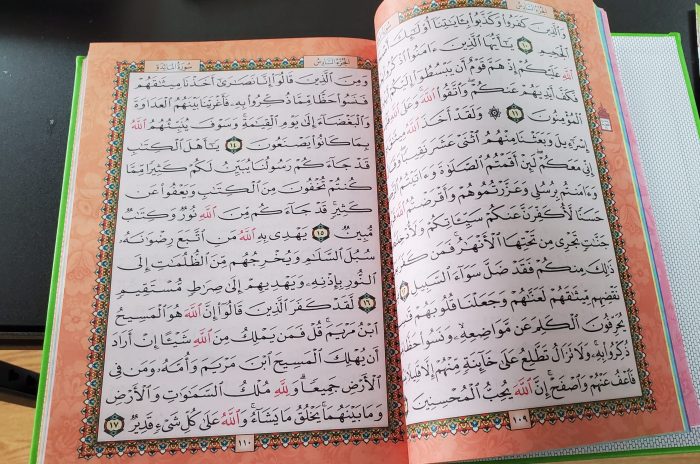 الجزء السادس
وَٱلَّذِينَ كَفَرُوا۟ وَكَذَّبُوا۟ بِـَٔايَـٰتِنَآ أُو۟لَـٰٓئِكَ
ٱلْجَحِيمِ ١٠ يَـٰٓأَيُّهَا ٱلَّذِينَ ءَامَنُوا۟
ٱللَّهِ عَلَيْكُمْ إِذْ هَمَّ قَوْمٌ أَن يَبْسُطُوٓا۟ إِلَيْكُمْ
فَكَفَّ أَيْدِيَهُمْ عَنكُمْ ۖ وَٱتَّقُوا۟ ٱللَّهَ ۚ وَعَلَى ٱللَّهِ
ٱلْمُؤْمِنُونَ ١١ ۞ وَلَقَدْ أَخَذَ ٱللَّهُ
إِسْرَٰٓءِيلَ وَبَعَثْنَا مِنْهُمُ ٱثْنَىْ عَشَرَ نَقِيبًا ۖ
إِنِّى مَعَكُمْ ۖ لَئِنْ أَقَمْتُمُ ٱلصَّلَوٰةَ وَءَاتَيْتُمُ
وَءَامَنتُم بِرُسُلِى وَعَزَّرْتُمُوهُمْ وَأَقْرَضْتُمُ
حَسَنًا لَّأُكَفِّرَنَّ عَنكُمْ سَيِّـَٔاتِكُمْ
جَنَّـٰتٍ تَجْرِى مِن تَحْتِهَا ٱلْأَنْهَـٰرُ ۚ فَمَن كَفَرَ
ذَٰلِكَ مِنكُمْ فَقَدْ ضَلَّ سَوَآءَ ٱلسَّبِيلِ
نَقْضِهِم مِّيثَـٰقَهُمْ لَعَنَّـٰهُمْ وَجَعَلْنَا قُلُوبَهُمْ
يُحَرِّفُونَ ٱلْكَلِمَ عَن مَّوَاضِعِهِۦ ۙ وَنَسُوا۟
ذُكِّرُوا۟ بِهِۦ ۚ وَلَا تَزَالُ تَطَّلِعُ عَلَىٰ خَآئِنَةٍ مِّنْهُمْ إِلَّا
فَٱعْفُ عَنْهُمْ وَٱصْفَحْ ۚ إِنَّ ٱللَّهَ يُحِبُّ ٱلْمُحْسِنِينَ
١٠٩
الجزء السادس سورة المائدة
وَمِنَ ٱلَّذِينَ قَالُوٓا۟ إِنَّا نَصَـٰرَىٰٓ أَخَذْنَا مِيثَـٰقَهُمْ
فَنَسُوا۟ حَظًّا مِّمَّا ذُكِّرُوا۟ بِهِۦ فَأَغْرَيْنَا بَيْنَهُمُ ٱلْعَدَاوَةَ
وَٱلْبَغْضَآءَ إِلَىٰ يَوْمِ ٱلْقِيَـٰمَةِ ۚ وَسَوْفَ يُنَبِّئُهُمُ ٱللَّهُ
بِمَا كَانُوا۟ يَصْنَعُونَ ١٤ يَـٰٓأَهْلَ ٱلْكِتَـٰبِ
قَدْ جَآءَكُمْ رَسُولُنَا يُبَيِّنُ لَكُمْ كَثِيرًا مِّمَّا
كُنتُمْ تُخْفُونَ مِنَ ٱلْكِتَـٰبِ وَيَعْفُوا۟ عَن
كَثِيرٍ ۚ قَدْ جَآءَكُم مِّنَ ٱللَّهِ نُورٌ وَكِتَـٰبٌ
مُّبِينٌ ١٥ يَهْدِى بِهِ ٱللَّهُ مَنِ ٱتَّبَعَ رِضْوَٰنَهُۥ
سُبُلَ ٱلسَّلَـٰمِ وَيُخْرِجُهُم مِّنَ ٱلظُّلُمَـٰتِ إِلَى
ٱلنُّورِ بِإِذْنِهِۦ وَيَهْدِيهِمْ إِلَىٰ صِرَٰطٍ مُّسْتَقِيمٍ
١٦ لَّقَدْ كَفَرَ ٱلَّذِينَ قَالُوٓا۟ إِنَّ ٱللَّهَ هُوَ ٱلْمَسِيحُ
ٱبْنُ مَرْيَمَ ۚ قُلْ فَمَن يَمْلِكُ مِنَ ٱللَّهِ شَيْـًٔا إِنْ أَرَادَ
أَن يُهْلِكَ ٱلْمَسِيحَ ٱبْنَ مَرْيَمَ وَأُمَّهُۥ وَمَن فِى
ٱلْأَرْضِ جَمِيعًا ۗ وَلِلَّهِ مُلْكُ ٱلسَّمَـٰوَٰتِ وَٱلْأَرْضِ
وَمَا بَيْنَهُمَا ۚ يَخْلُقُ مَا يَشَآءُ ۚ وَٱللَّهُ عَلَىٰ كُلِّ شَىْءٍ قَدِيرٌ ١٧
١١٠